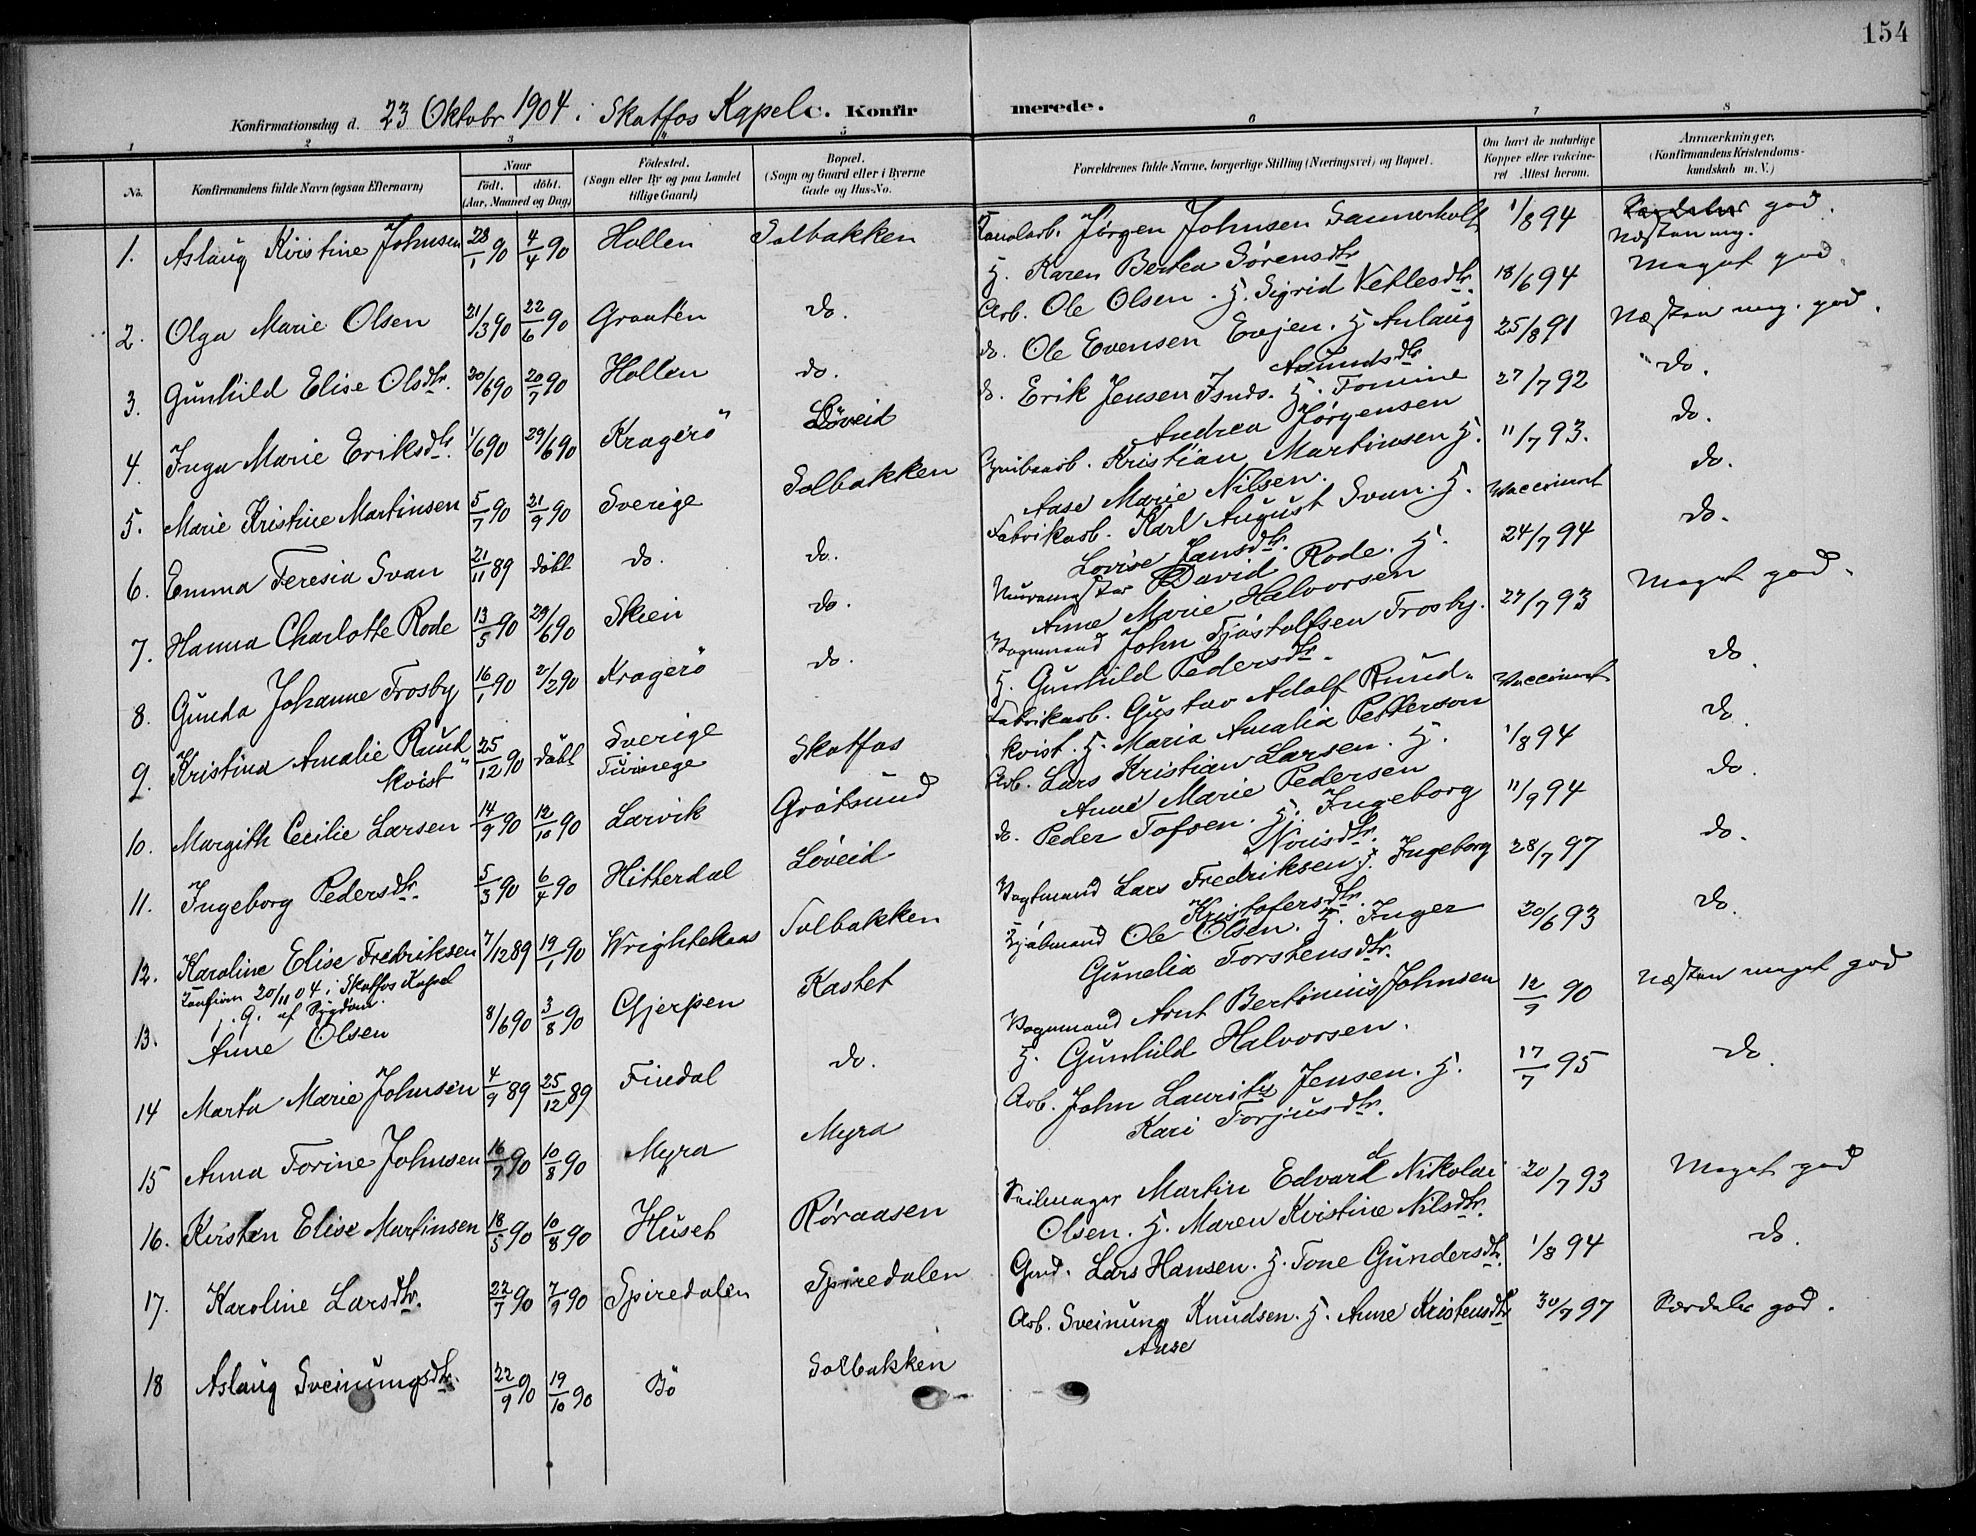 154
Konfirmationsdag d. 23 Oktobr 1904 i Skotfos Kapel c. Konfir merede.
1 2 3 4 5 6 7 8
No. Konfirmandens fulde Navn (ogsaa Efternavn) Naar født. døbt. (Aar, Maaned og Dag) Fødested. (Sogn eller By og paa Landet tillige Gaard) Bopæl. (Sogn og Gaard eller i Byerne Gade og Hus-No. Forældrenes fulde Navne, borgerlige Stilling (Næringsvei) og Bopæl. Om havt de naturlige Kopper eller vakcineret Attest herom. Anmærkninger. (Konfirmandens Kristendomskundskab m. V.)
1. Aslaug Kristine Johnsen 28/1 90 4/4 90 Hollen Solbakken Kanalarb. Jørgen Johnsen 1/8 94 god.
H. Karen Bertea Sørensdtr Næsten mg.
2. Olga Marie Olsen 21/3 90 22/6 90 Graaten do. Arb. Ole Olsen. H. Sigrid Vetlesdtr. 18/6 94 Meget god.
3. Gunhild Elise Olsdtr. 30/6 90 20/7 90 Hollen do. do. Ole Evensen Evjen. H. Anlaug 25/8 91 Næsten mg. god.
Asmundsdtr
4. Inga Marie Eriksdtr. 1/6 90 29/6 90 Kragerö Löveid do. Erik Jensen H. Tomine 27/7 92 do.
Andrea Jörgensen
5. Marie Kristine Martinsen 5/7 90 21/9 90 Sverige Solbakken Kristian Martinsen H. 11/7 93. do.
Aase Marie Nilsen.
6. Emma Teresia Svan 21/11 89 döbt do. do. Fabrikarb. Karl August Svan. H. Vaccineret do.
Lovise Jansdtr.
7. Hanna Charlotte Rode 13/5 90 29/6 90 Skien do. Murermester David Rode. H. 24/7 94 do.
Anne Marie Halvorsen
8. Gunda Johanne Trosby 16/1 90 2/2 90 Kragerö do. Vognmand John Tjöstolfsen Trosby. 27/7 93 Meget god.
H. Gunhild Pedersdtr.
9. Kristina Amalie Rund 25/12 90 döbt Sverige Skotfos Fabrikarb. Gustav Adolf Rund- Vaccineret do.
kvist kvist. H. Maria Amalia Petterson
10. Margith Cecilie Larsen 14/9 90 12/10 90 Larvik Gråtsund Arb. Lars Kristian Larsen. H. 1/8 94 do.
Anne Marie Pedersen
11. Ingeborg Pedersdtr. 5/3 90 6/4 90 Hitterdal Löveid do. Peder Tofsen. H. Ingeborg 11/9 94 do.
12. Karoline Elise Fredriksen 7/12 89 19/1 90 Solbakken Vagtmand Lars Fredriksen H. Ingeborg 28/7 97 do.
Konfirm 20/11 04 i Skotfos Kapel Kristofersdtr.
p. G. af Sygdom.
13. Anne Olsen 8/6 90 3/8 90 Gjerpen Kastet Ole Olsen. H. Inger 20/6 93 do.
Gunelia Torstensdtr.
14 Marta Marie Johnsen 4/9 89 25/12 89 Findal do. Vognmand Arnt Bertinius Johnsen 12/9 90 Næsten meget god
H. Gunhild Halvorsen.
15 Anna Torine Johnsen 16/7 90 10/8 90 Myra Myra Arb. John Lauritz Jensen. H. 17/7 95 do.
Kari Torjusdtr.
16. Kirsten Elise Martinsen 18/5 90 10/8 90 Huset Röraasen Seilmager Martin Edvard Nikolai 20/7 93 Meget god
Olsen. H. Maren Kristine Nilsdtr.
17. Karoline Larsdtr. 22/7 90 7/9 90 Spiredalen Spiredalen Gmd. Lars Hansen. H. Tone Gundersdtr. 1/8 94 do.
18 Aslaug Sveinungsdtr. 22/9 90 19/10 90 Bö Solbakken Arb. Sveinung Knudsen. H. Anne Kristensdtr 30/7 97 Særdeles god.
Aase